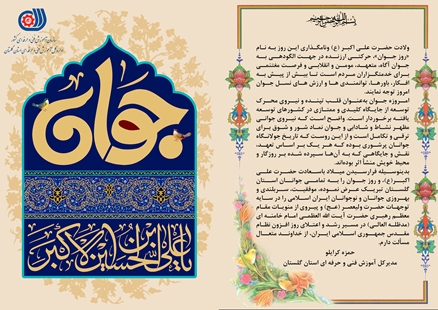 سازمان آموزش فنی و حرفه ای کشور
اداره کل آموزش فنی و حرفه ای استان گلستان
جوان
یا علی بن الحسین الاکبر
بسم الله الرحمن الرحیم
ولادت حضرت علی اکبر (ع) ونامگذاری این روز به نام
«روز جوان»، حرکتی ارزنده در جهت الگودهی به
جوان آگاه، متعهد، مومن و انقلابی و فرصت مغتنمی
برای خدمتگزاران مردم است تا بیش از پیش به
افکار، باورها، توانمندی ها و ارزش های نسل جوان
امروز توجه نمایند.
امروزه جوان به‌عنوان قلب تپنده و نیروی محرک
توسعه از جایگاه کلیدی و ممتازی در کشورهای توسعه
یافته برخوردار است. واضح است که نیروی جوانی
مظهر نشاط و شادابی و جوان نماد شور و شوق برای
ترقی و تکامل است و از این روست که تاریخ جولانگاه
جوانان پرشوری بوده که هر یک بر اساس تعهد،
نقش و جایگاهی که به آن‌ها سپرده شده بر روزگار و
محیط خویش منشأ اثر بوده‌اند.
بدینوسیله فرارسیدن میلاد باسعادت حضرت علی
اکبر(ع)، و روز جوان را به تمامی جوانان استان
گلستان تبریک عرض نموده، موفقیت، سربلندی و
بهروزی جوانان و نوجوانان ایران اسلامی را در سایه
توجهات حضرت ولیعصر (عج) و پیروی از منویات مقام
معظم رهبری حضرت آیت الله العظمی امام خامنه ای
(مدظله العالی) در مسیر رشد و اعتلای روز افزون نظام
مقدس جمهوری اسلامی ایران، از خداوند متعال
مسألت دارم.
حمزه کرایلو
مدیرکل آموزش فنی و حرفه ای استان گلستان